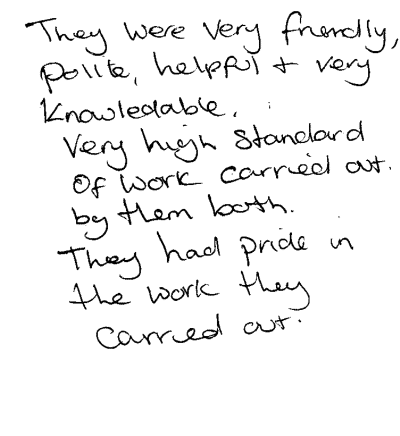 They were very friendly,
polite, helpful + very
knowledable.
Very high standard
of work carried out.
by them both.
They had pride in
the work they
carried out.